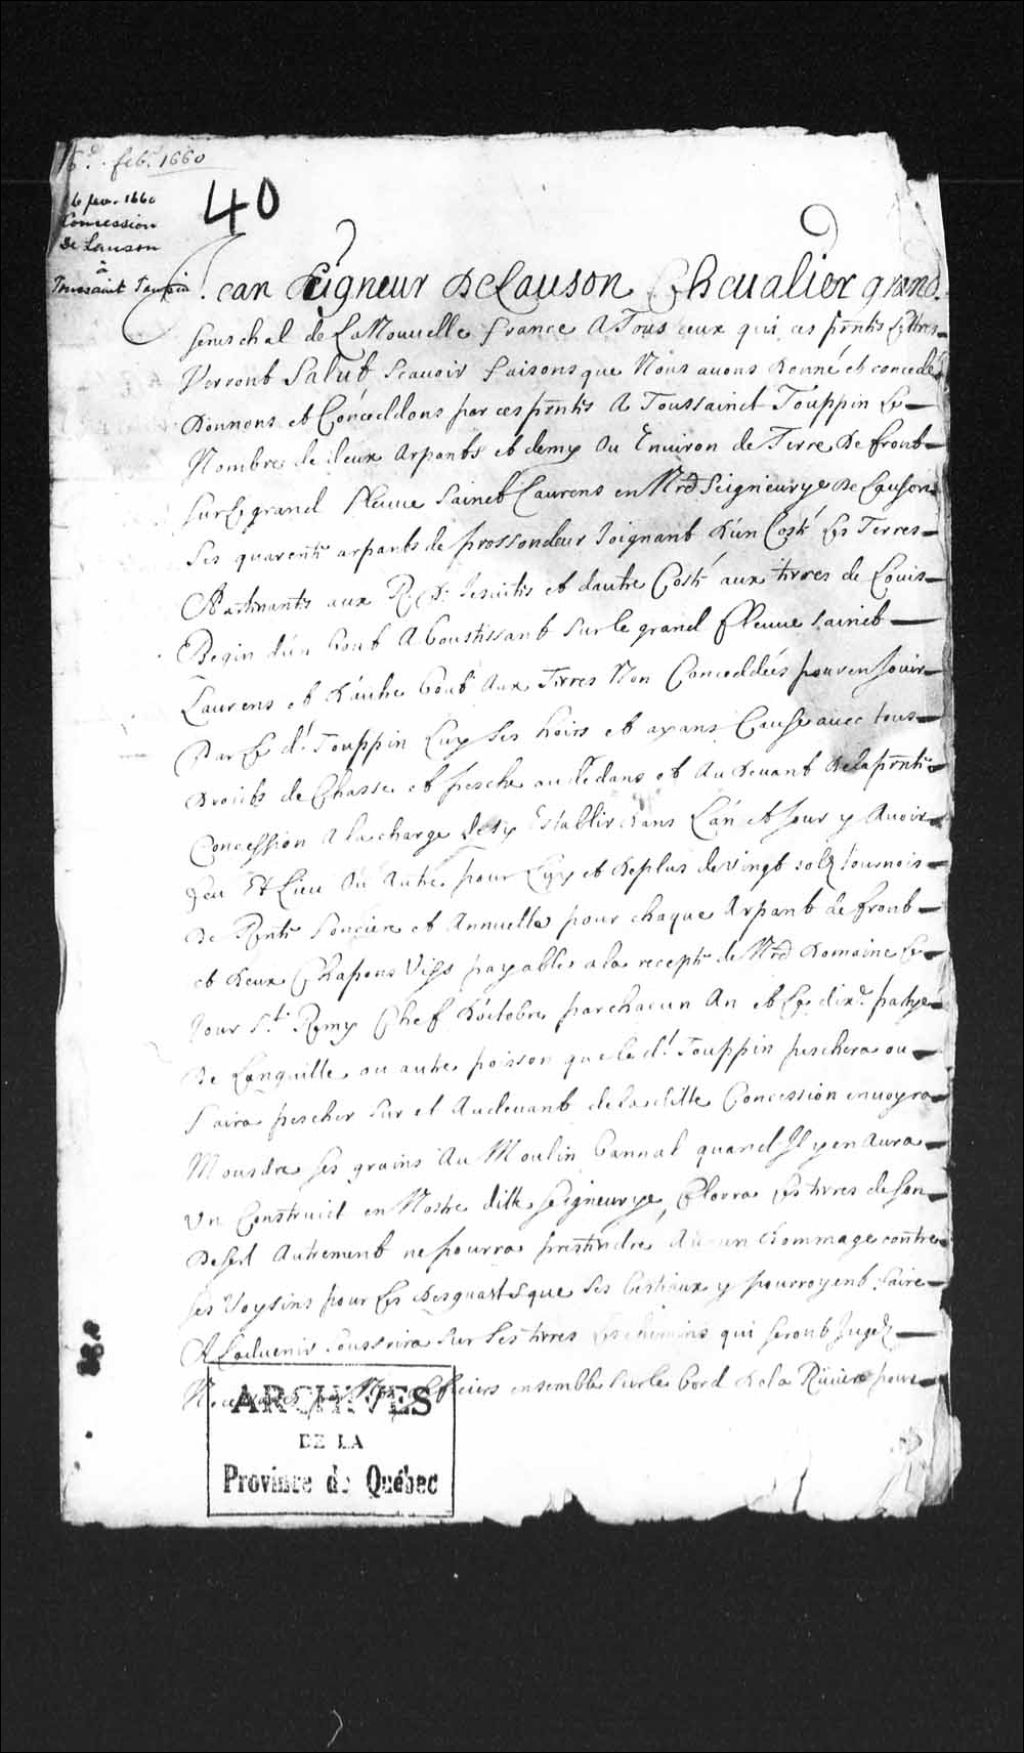 6e. feb. 1660
6 fev. 1660
Concession
De Lauson
à
Toussaint Toupin
40
Jean Seigneur De Lauson Cheualier grand
seneschal de La Nouuelle france A Tous ceux qui ces pntes Lettres
Verront Salut Scauoir faisons que Nous auons donné et concedé
Donnons et Conceddons par ces pntes A Toussainct Touppin Le
Nombre de deux arpants et demy ou Enuiron de Terre De front
sur Le grand fleuue Sainct Laurens en Nred Seigneurye de Lauson
Les quarente arpants de proffondeur Joignant d'un Costé Les Terres
Apartenantes aux R. P. Jesuittes et dautre Costé aux terres de Louis
Begin d'un bout Aboustissant sur le grand fleuue Sainct
Laurens et d'autre bout Aux Terres Non Conceddées pour en Jouir
Par Le dt Touppin Luy Ses hoirs et ayans Cause auec tous
droicts de Chasse et pesche au dedans et Au deuant de la pnte
Concession A la charge de sy Establir dans L'an et Jour y Auoir
feu Et Lieu Ou Autre pour Luy et de plus de vingt solz tournois
de Rente fonciere et Annuelle pour chaque Arpant de front
et deux Chapons Vifs payables a la recepte de Nred domaine Le
Jour St Remy Chef d'octobre par chacun An et Le dixe
de Languille ou autre poisson que le dt Touppin peschera ou
faira pescher sur et Au deuant de la ditte Concession enuoyra
Moudre ses grains Au Moulin bannal quand Il y en Aura
Vn Construict en Nostre ditte seigneurye, Clorra Les terres de son
desert Autrement ne pourra prestendre Aucun dommage contre
ses Voysins pour Les desgasts que Les bestiaux y pourroyent faire
A Laduenir souffrira sur Ses terres Les chemins qui seront Jugez
Necessaires par Nos officiers ensemble sur le bord de la Riuiere pour
ARCHIVES
DE LA
Province de Québec